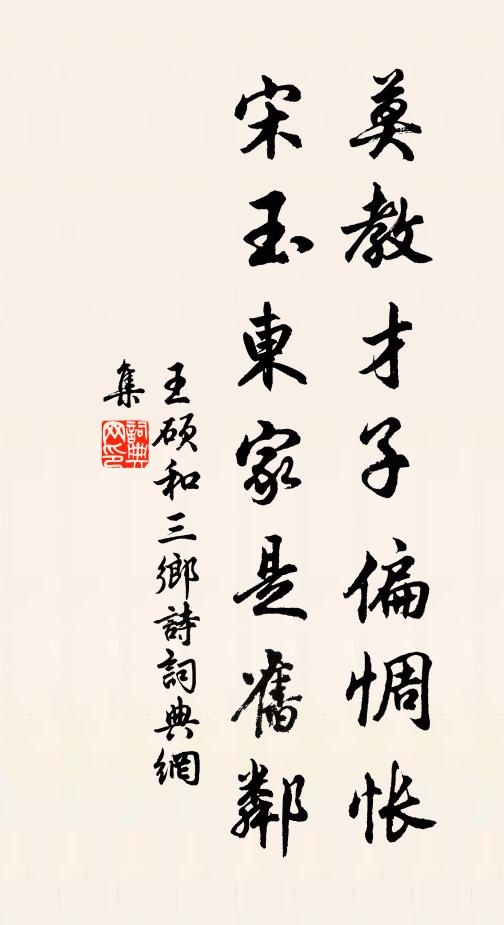 莫教才子偏惆怅
宋玉東家是舊鄰
王硕和三鄉詩詞典網
集
詞典网印